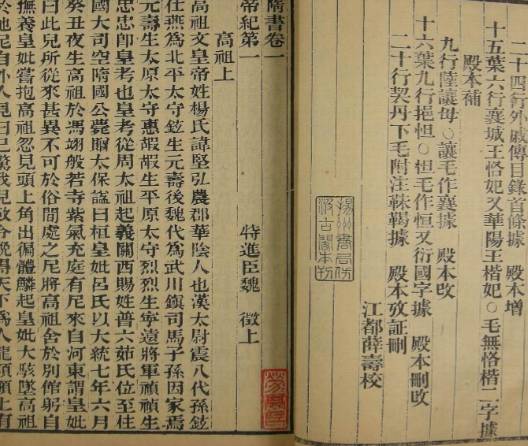 二十四行外戚傳目錄首條據　殿本增
十五葉六行襄城王恪妃又華陽王楷妃○毛無恪楷二字據
殿本補
九行薩讓母○讓毛作襄據　殿本改
十六葉九行挹怛○怛毛作恒又衍國字據　殿本刪改
二十行契丹下毛附注靺鞨據　殿本攷証刪
江都薛壽校
揚州書局仿
汲古閣本刊
隋書卷一
帝紀第一　特進臣魏　徵上
高祖上
高祖文皇帝姓楊氏諱堅弘農郡華陰人也漢太尉震八代孫鉉
仕燕為北平太守鉉生元壽後魏代為武川鎮司馬子孫因家焉
元壽生太原太守惠嘏嘏生平原太守烈烈生寧遠將軍禎禎生
忠忠卽皇考也皇考從周太祖起義關西賜姓普六茹氏位至柱
國大司空隋國公薨贈太保諡曰桓皇妣呂氏以大統七年六月
癸丑夜生高祖於馮翊般若寺紫氣充庭有尼來自河東謂皇妣
曰此兒所從來甚異不可於俗間處之尼將高祖舍於別館躬自
撫養皇妣嘗抱高祖忽見頭上角出徧體鱗起皇妣大駭墜高祖
於地尼自外入見曰已驚我兒致令晚得天下為人龍頷額上有